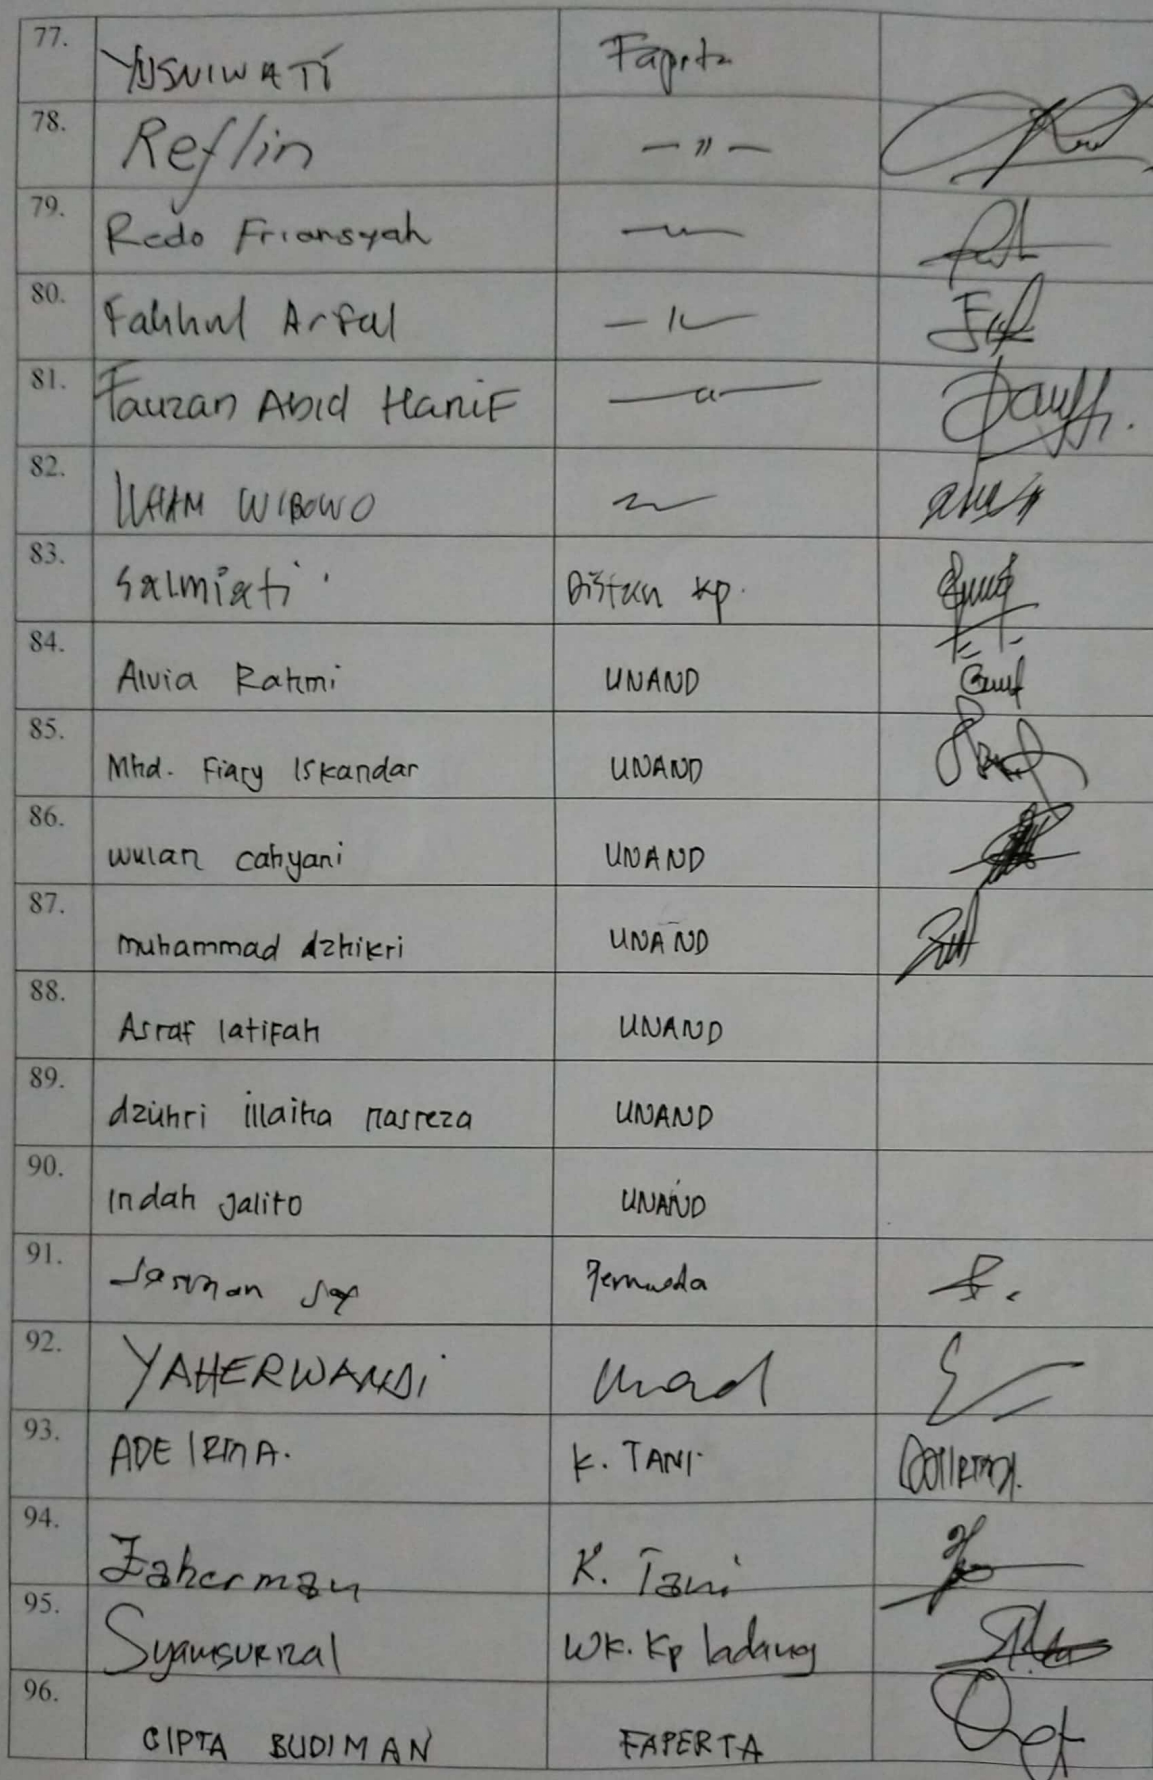 77. YUSNIWATI Faperta
78. Reflin — " —
79. Redo Friansyah — " —
80. Fakhrul Arfal — " —
81. Fauzan Abid Hanif — " —
82. ILHAM WIBOWO
83. Salmiati Distan kp.
84. Alvia Rahmi UNAND
85. Mhd. Fiary Iskandar UNAND
86. wulan cahyani UNAND
87. muhammad dzhikri UNAND
88. Asraf latifah UNAND
89. dzuhri illaiha nasreza UNAND
90. Indah Jalito UNAND
91. Pemuda
92. YAHERWANDI Unand
93. ADE IRMA. K. TANI
94. Zaherman K. Tani
95. Syamsurizal WK. Kp ladang
96. CIPTA BUDIMAN FAPERTA